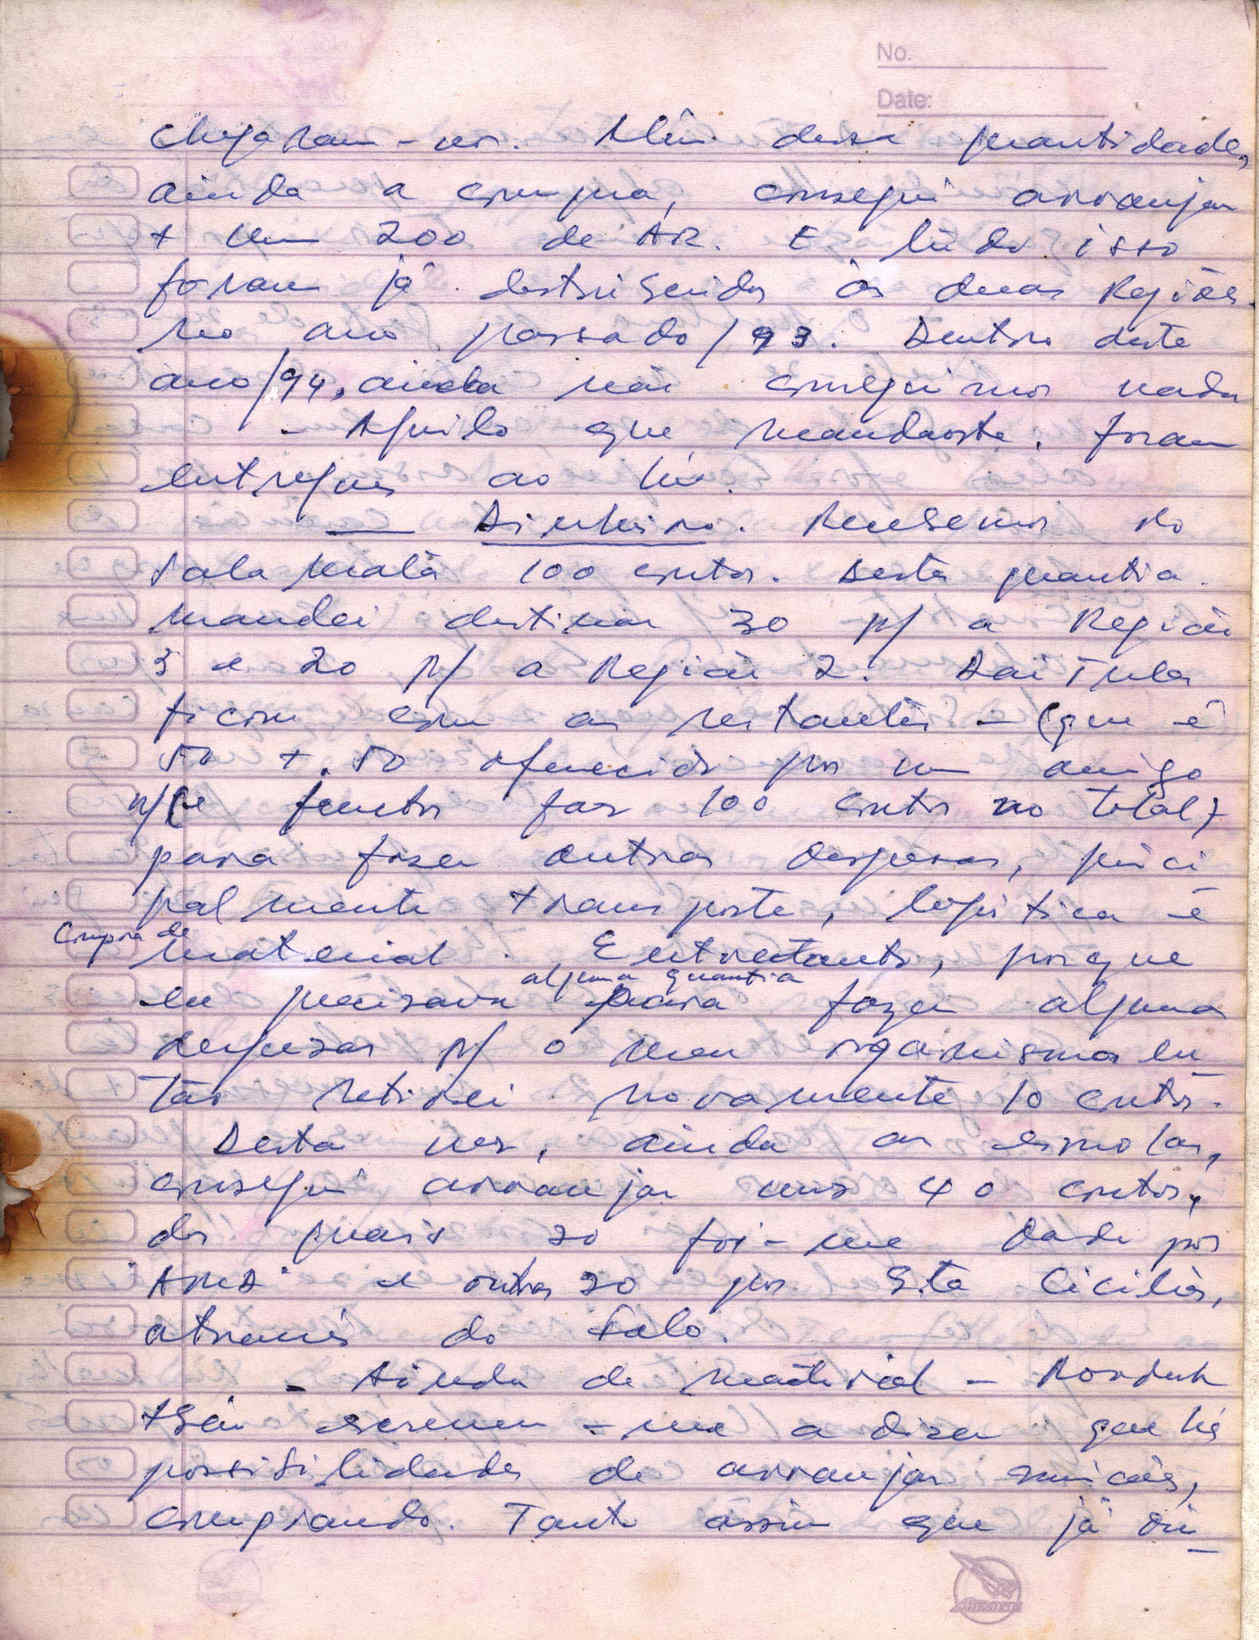 No.
Date:
chegaram-nos. Além dessa quantidade,
ainda a compra, consegui arranjar
+ um 200 de AR. E tudo isso
foram já destribuidos às duas Regiões.
no ano passado/93. Dentro deste
ano/94, ainda não conseguimos nada
- Aquilo que mandaste, foram
entregues ao
— Dinheiro. Recebemos do
Sala Malâ 100 contos. Desta quantia
mandei destinar 30 p/ a Região
3 e 20 p/ a Região 2. DaiTula
ficou com as restantes - (que é
50 + 50 oferecido por um amigo
n/ e juntos faz 100 contos no total)
para fazer outras despesas, princi
palmente transporte, logística e
Compra de
material. Entretanto, porque
alguma quantia
eu precisava para fazer alguma
despezas p/ o meu organismos en
tão retirei novamente 10 contos.
Desta vez, ainda as esmolas,
consegui arranjar uns 40 contos,
dos quais 20 foi-me dado por
"AMD" e outros 20 por Sta Cicilia,
através do Falo.
- Ainda de material -
escrevem-me a dizer que há
possibilidades de arranjar munições,
comprando. Tanto assim que já